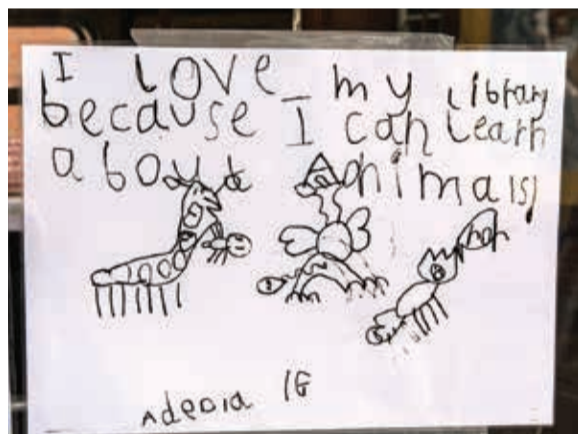 I LOVE my Library
because I can Learn
about Animals
nom
Adeola 1G